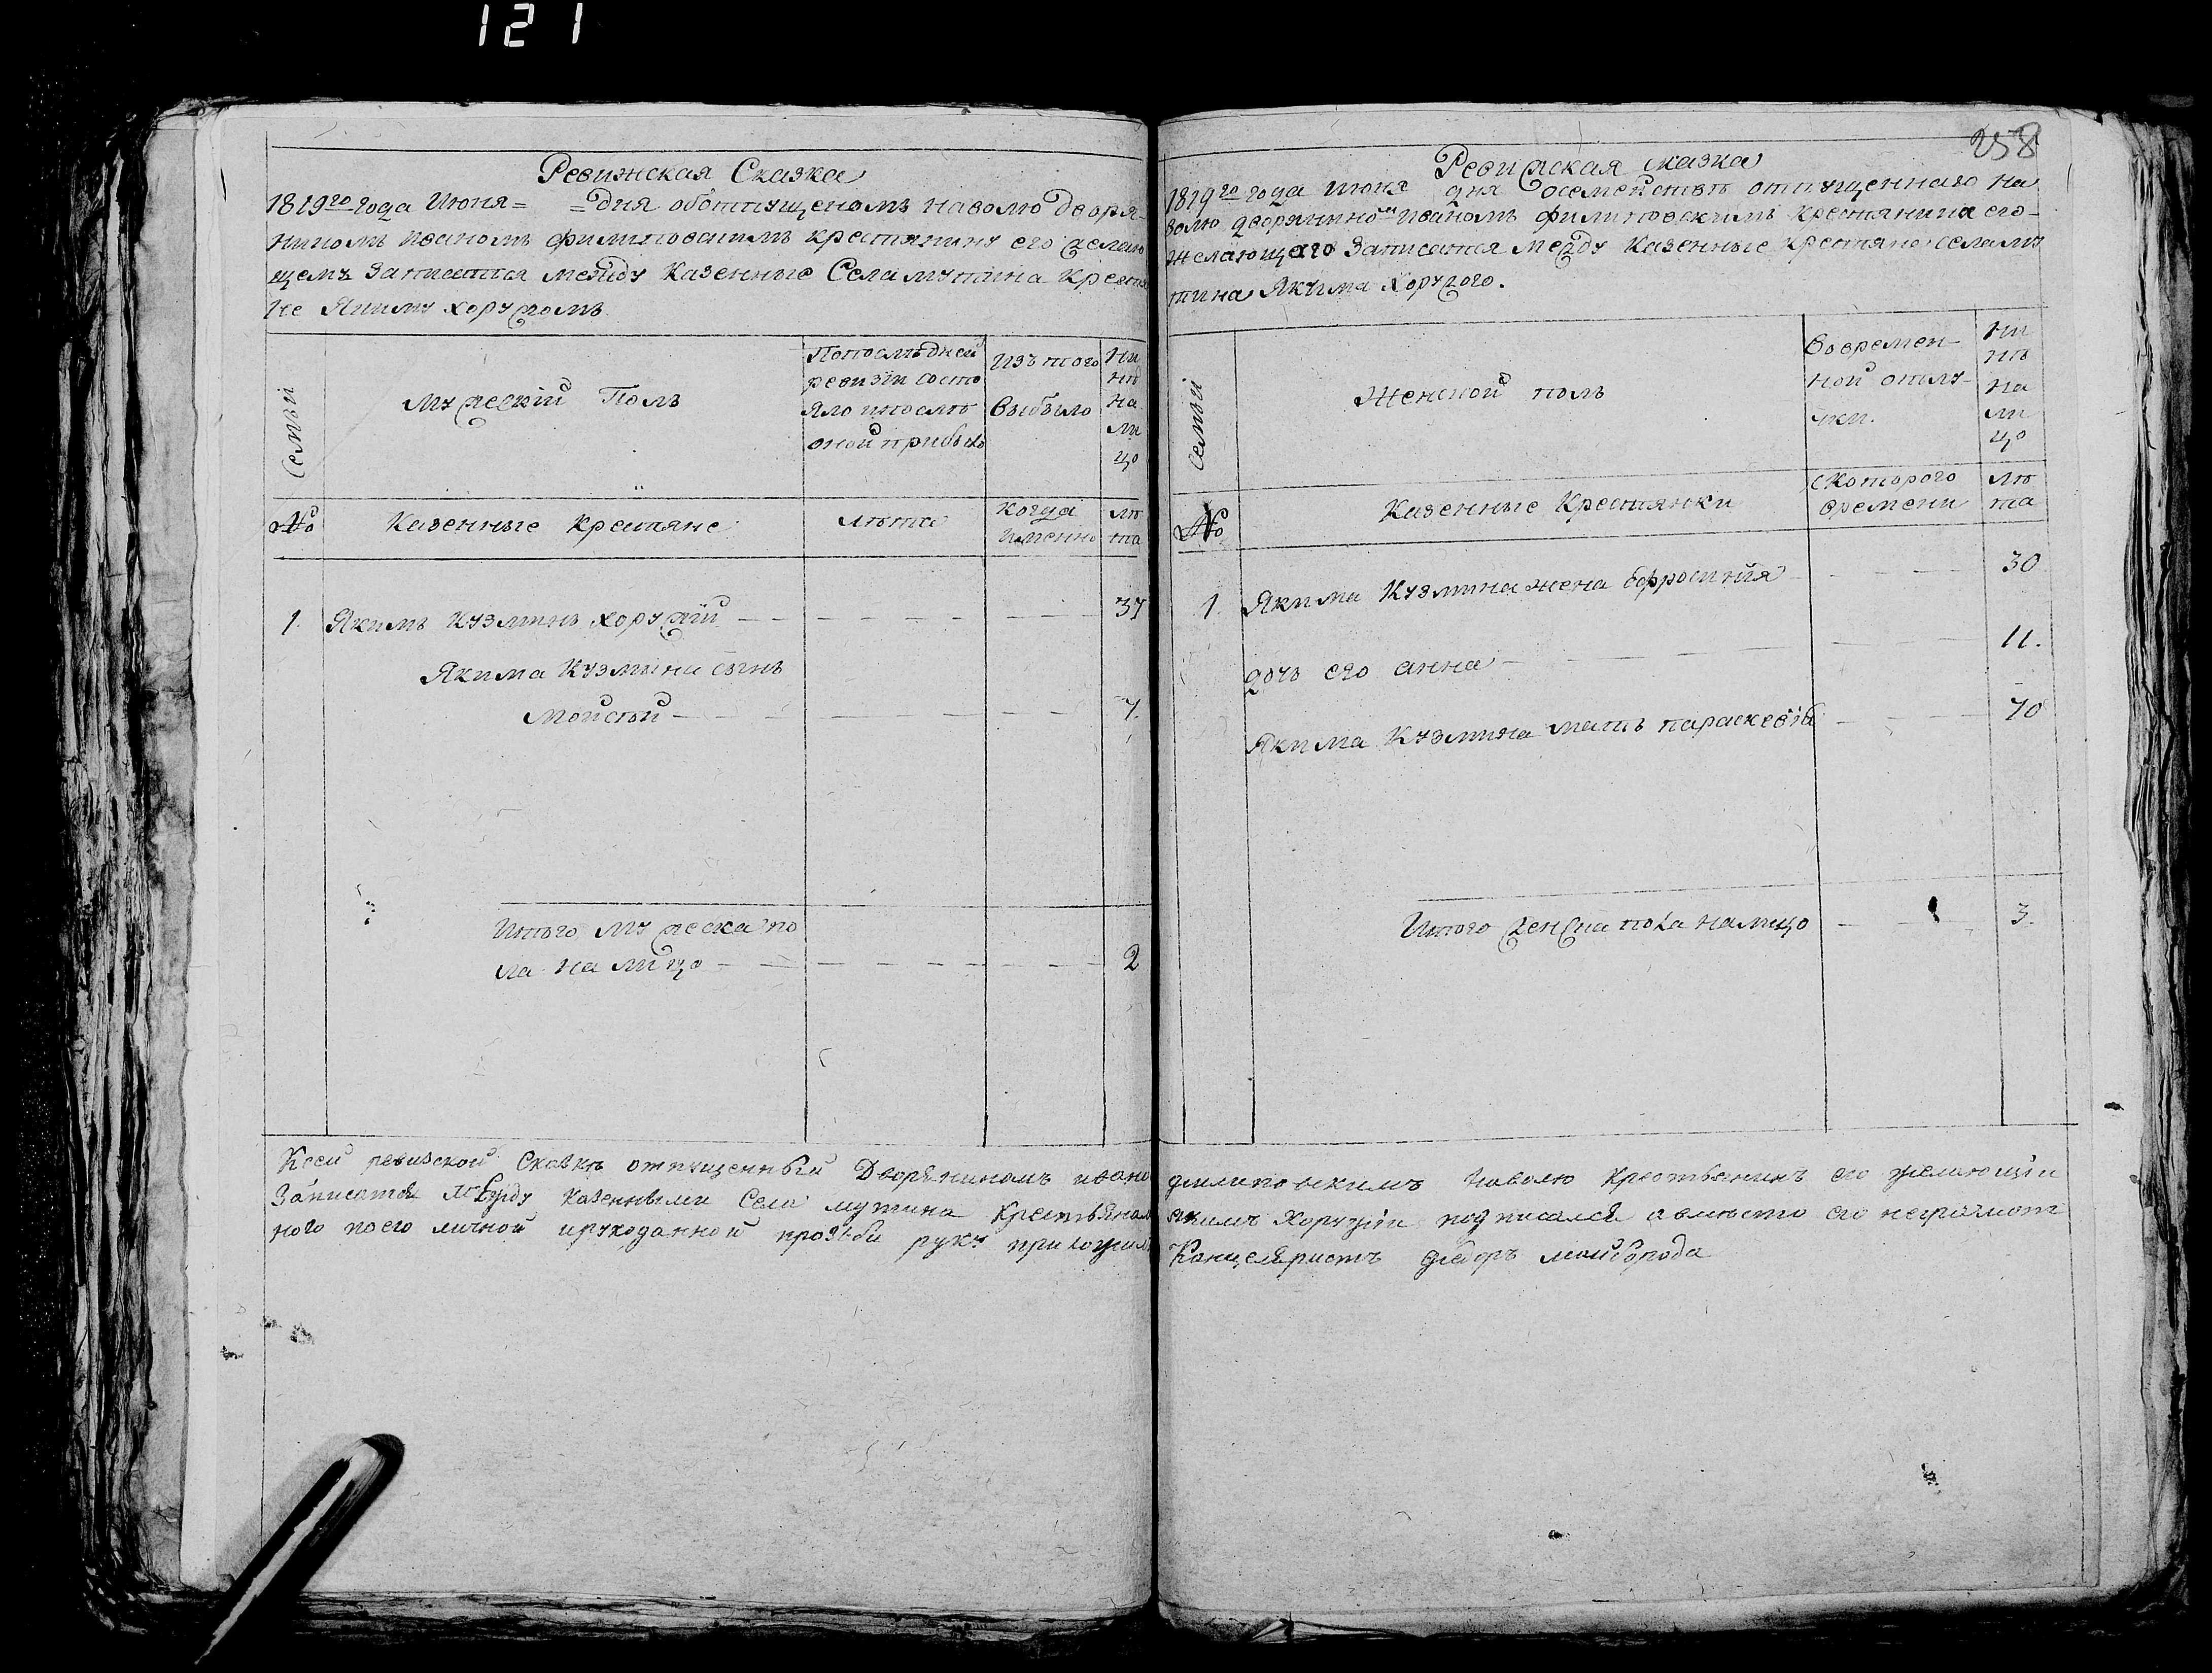 121
Ревижская Сказка
1819го года Июня = = дня оботпущеномъ наволю дворя-
ниномъ Иваномъ филиповскимъ крестянину его желаю
щемъ записатся между Казенные Села мутина крестя
не Якиму хоружомъ
Семьи
Мужескій Полъ
Попослѣдней
ревизіи состо
яло ипослѣ
оной прибыло
Изъ того
выбыло
Ни
нѣ
на
ли
цо
№
Казенные крестяне
лѣта
Когда
имѣнно
лѣ
та
1. Якимъ Кузминъ хоружій — — — 37
Якима Кузмина сынъ
Мойсей — — — 7.
Итого мужеска по
ла на лицо — — — 2
258
Ревижская сказка
1819го года Июня дня осемействѣ отпущеннаго на
волю дворяниномъ Иваномъ филиповскимъ крестянина его
желающаго записатся между казенные крестяне села му
тина Якима Хоружого.
Семьи
Женской полъ
Вовремен-
ной отлу-
чки.
Ни
нѣ
на
ли
цо
№
Казенные Крестянки
скоторого
времени
лѣ
та
1. Якима Кузмина жена Ефросинія — — — 30
дочь его анна — — — 11.
Якима Кузмина мать параскевія — — — 70
Итого женска пола налицо — — 3.
Ксей ревизской Сказкѣ отпущенный Дворяниномъ ивано филиповскимъ наволю крестьянинъ его желающіи
Записатся между казенными Села мутина Крестьянам якимъ Хоружіи подписался авмѣсто его неграмот
ного поего личной ирукоданной прозьби руку приложилъ Канцеляристъ федоръ майборода